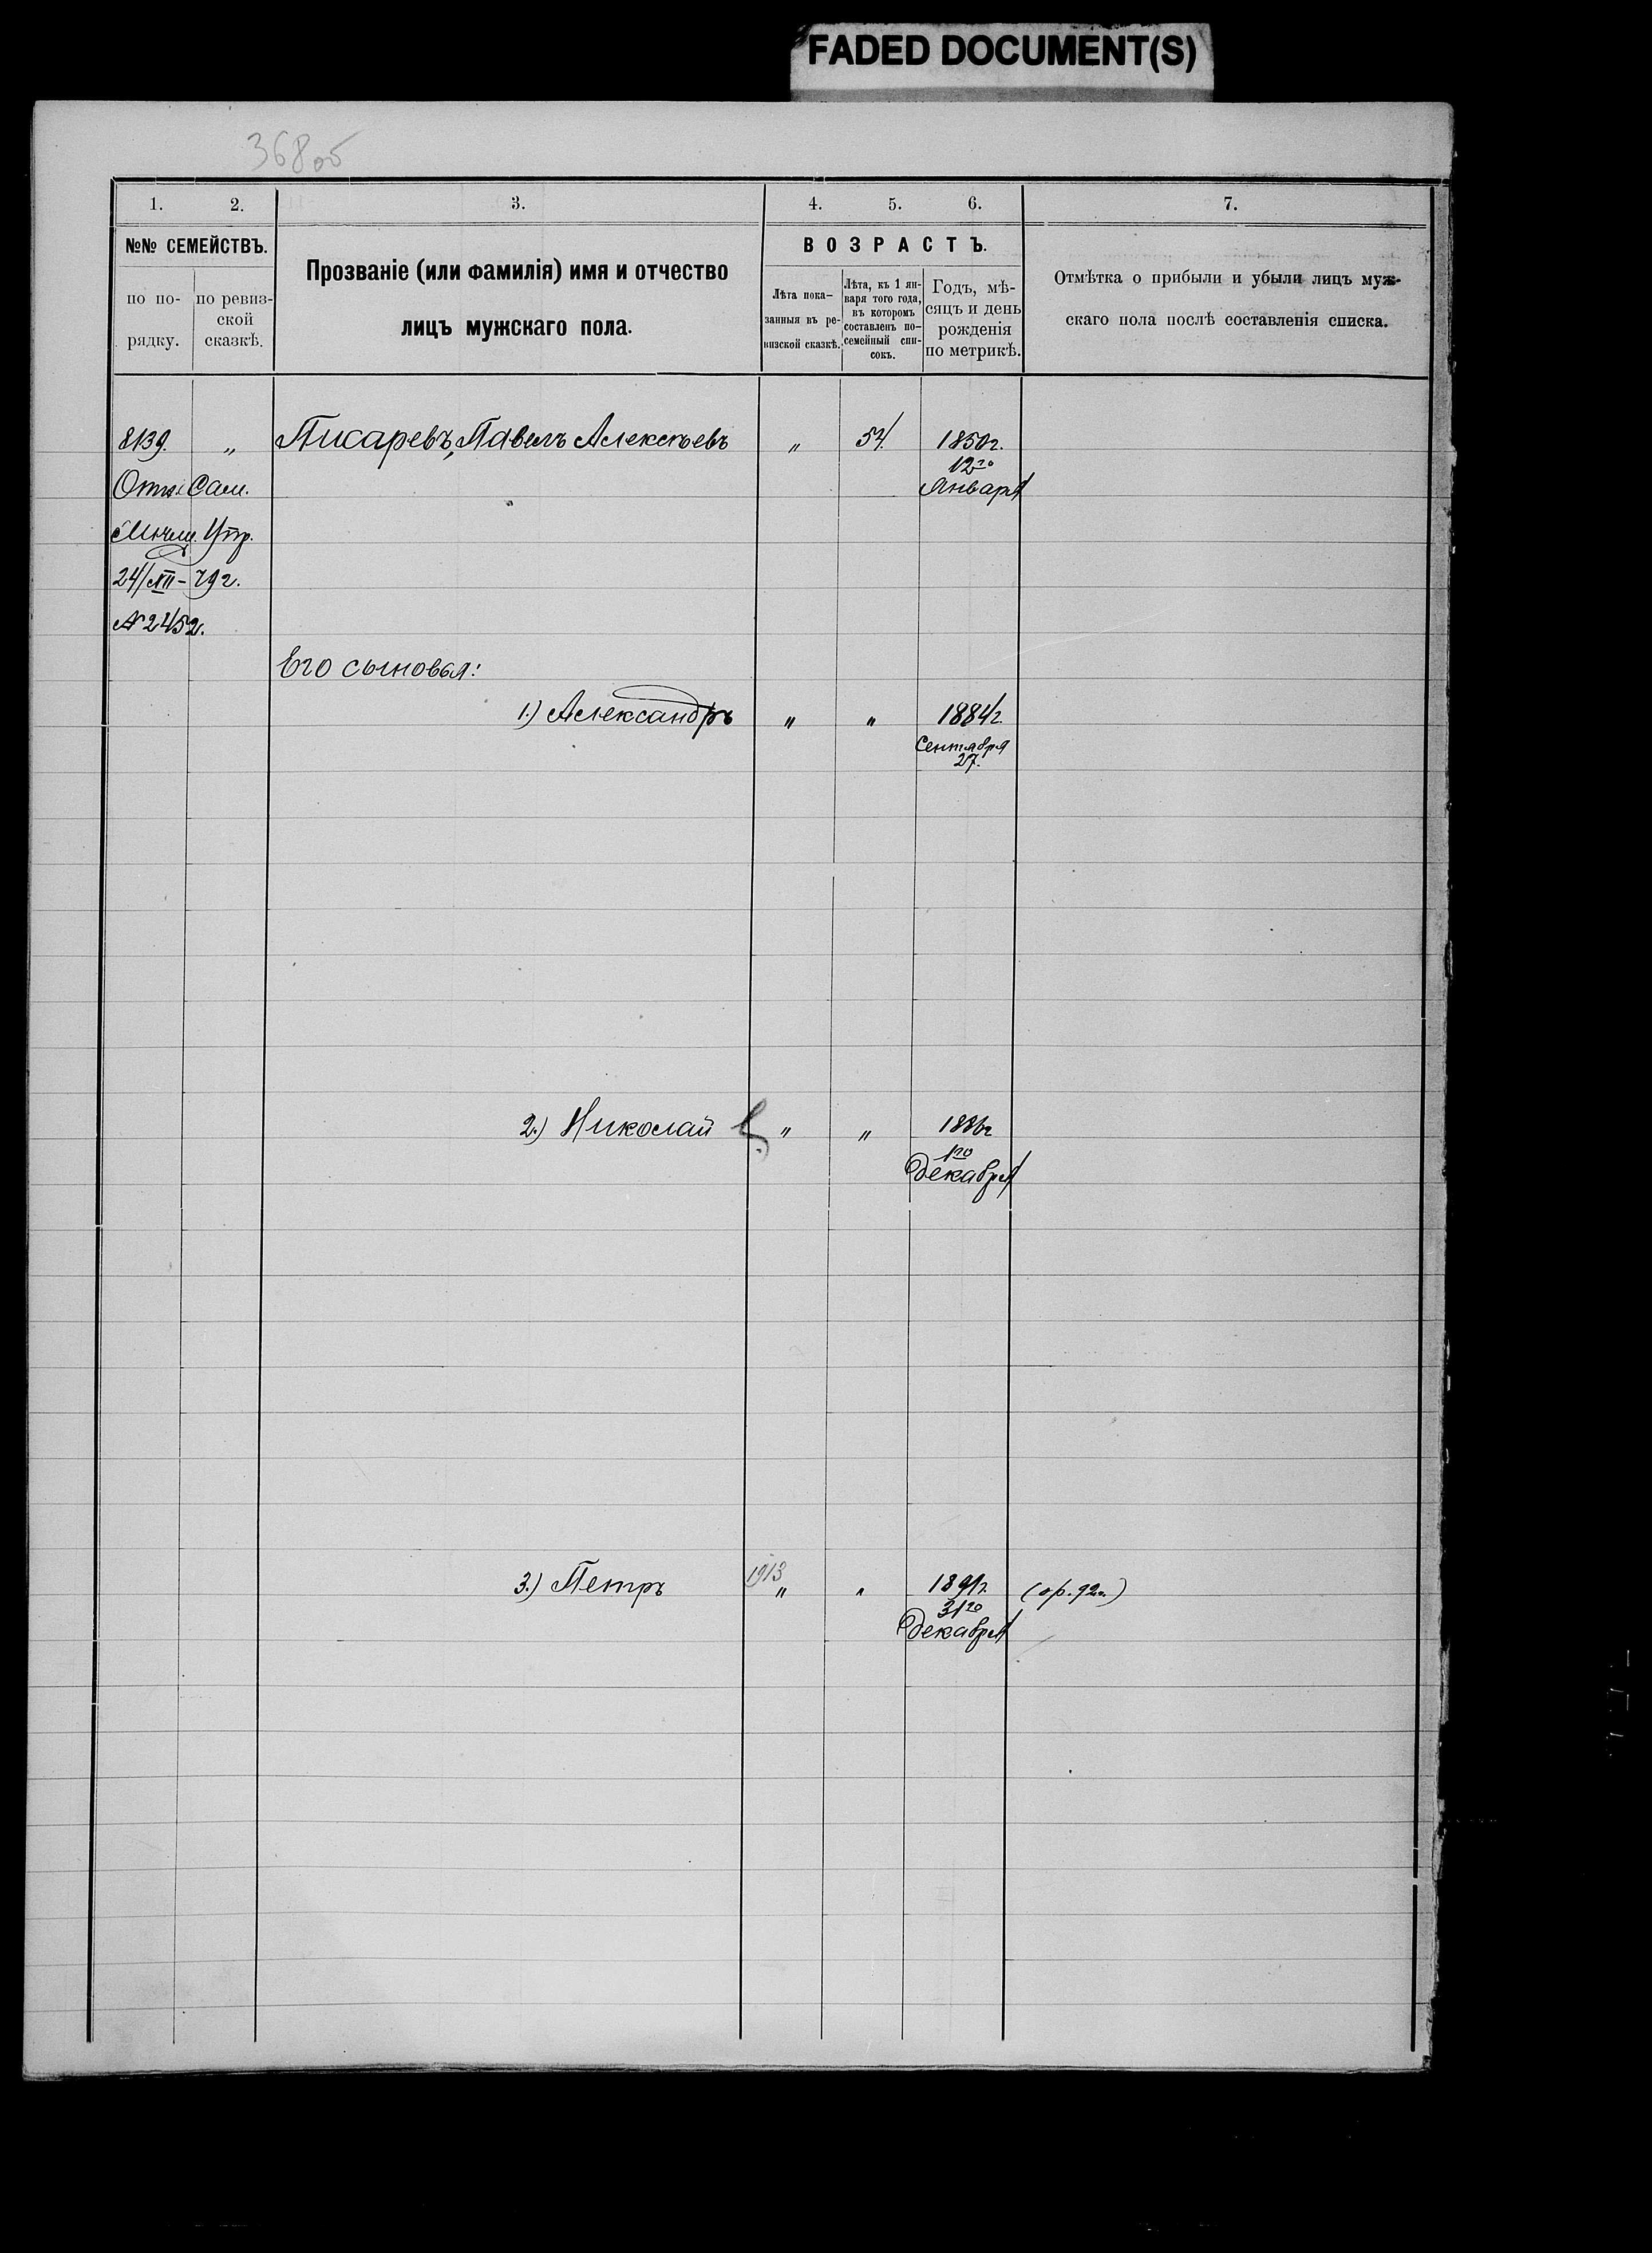 FADED DOCUMENT(S)
368об
1. 2. 3. 4. 5. 6. 7.
№№ СЕМЕЙСТВЪ.
по по-
рядку.
по ревиз-
ской
сказкѣ.
Прозваніе (или фамилія) имя и отчество
лицъ мужскаго пола.
ВОЗРАСТЪ.
Лѣта пока-
занныя въ ре-
визской сказкѣ.
Лѣта, къ 1 ян-
варя того года,
въ которомъ
составленъ по-
семейный спи-
сокъ.
Годъ, мѣ-
сяцъ и день
рожденія
по метрикѣ.
Отмѣтка о прибыли и убыли лицъ муж-
скаго пола послѣ составленія списка.
8139. „ Писаревъ, Павелъ Алексѣевъ „ 54 1850г.
12го
Января
Сам.
Упр.
24/XII-79г.
№2452.
Его сыновья:
1.) Александръ „ „ 1884г.
Сентября
27.
2.) Николай „ „ 1886г
1го
Декабря
3.) Петръ 1913 „ „ 1891г. (ор. 92г.)
31го
Декабря